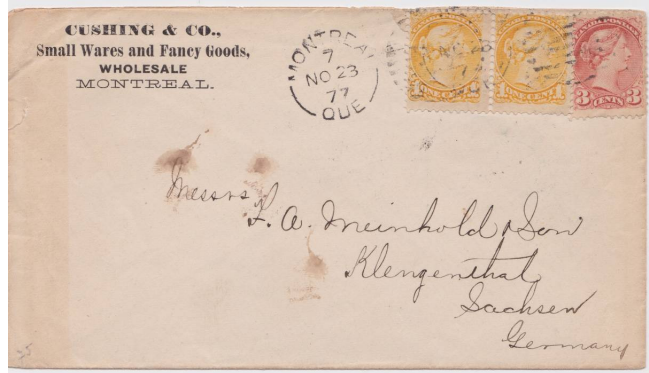 CUSHING & CO.,
Small Wares and Fancy Goods,
WHOLESALE
MONTREAL.
MONTREAL
7
NO 23
77
QUE
ONE CENT
1 ONE CENT 1
CANADA POSTAGE
3 CENTS 3
Messrs
F. A. Meinhold & Son
Klengenthal
Sachsen
Germany
25